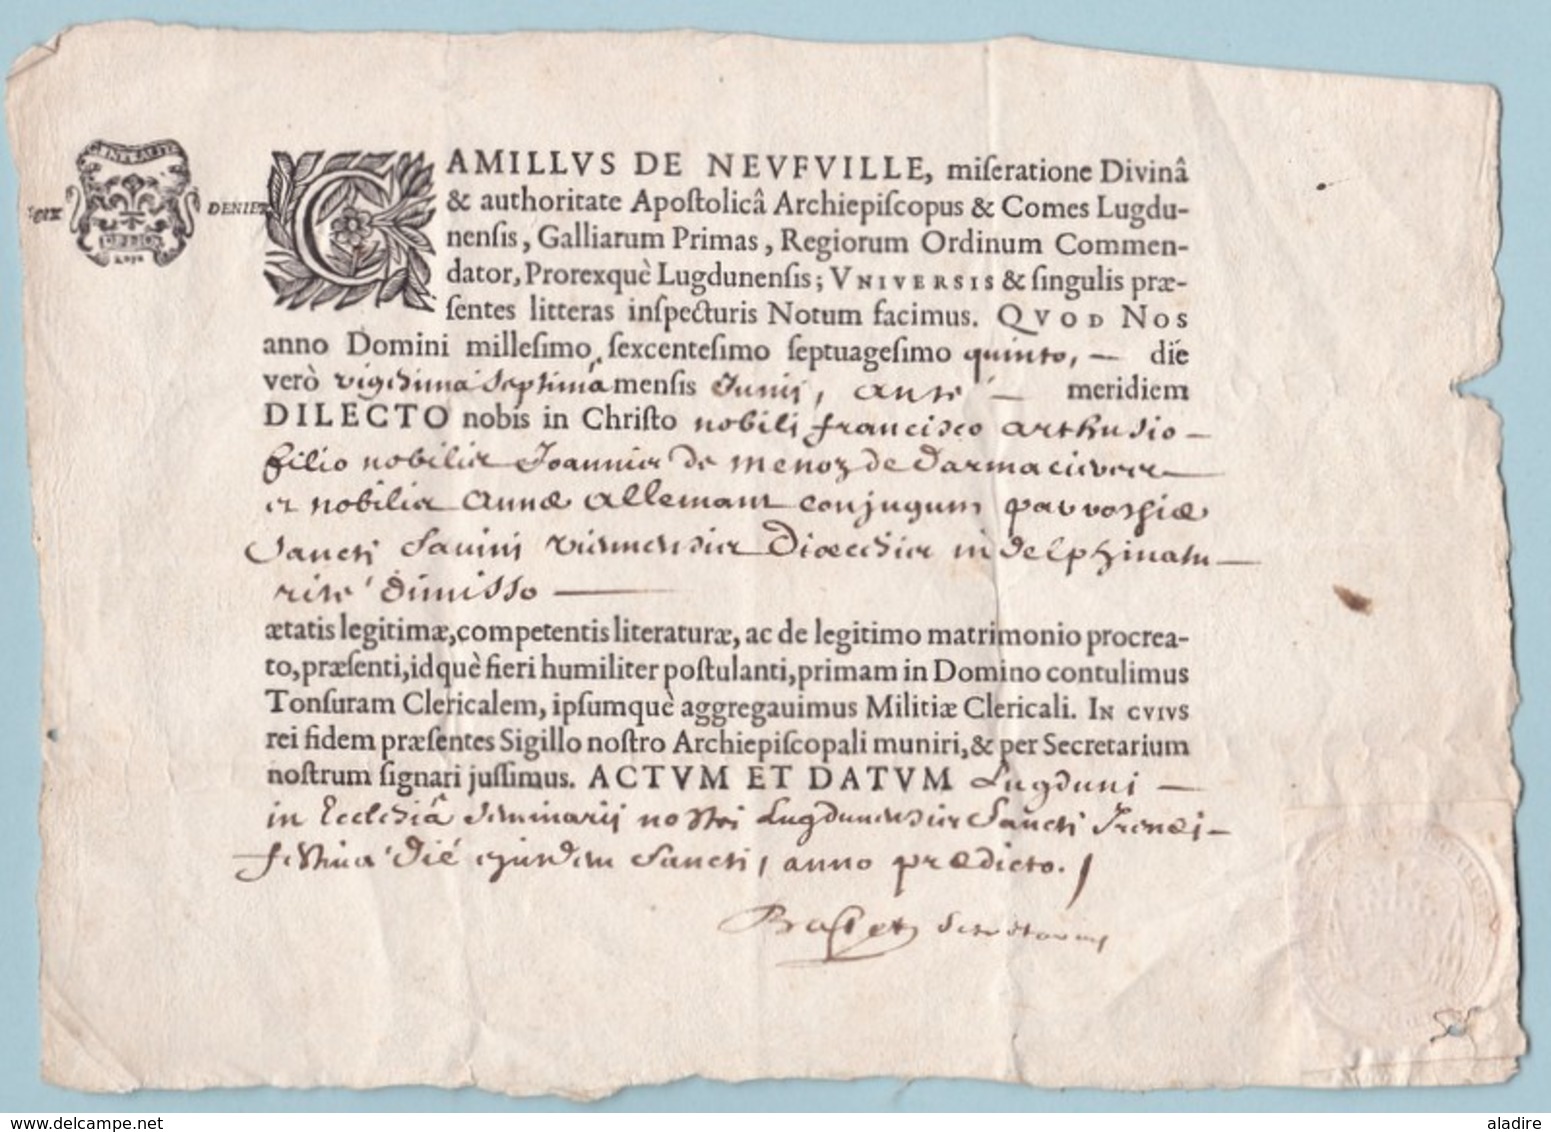 GENERALITE
SIX DENIERS
CAMILLVS DE NEVFVILLE, miſeratione Divinâ
& authoritate Apoſtolicâ Archiepiſcopus & Comes Lugdu-
nenſis, Galliarum Primas, Regiorum Ordinum Commen-
dator, Prorexquè Lugdunenſis; VNIVERSIS & ſingulis præ-
ſentes litteras inſpecturis Notum facimus. QVOD NOS
anno Domini milleſimo ſexcenteſimo ſeptuageſimo quinto, — die
verò vigesima septima menſis Junij, ante — meridiem
DILECTO nobis in Chriſto nobili francisco arthusio —
filio nobilis Joannis de menoz de
et nobilis Annæ allemant conjugum parrochiæ
Sancti Savini viennensis Dioecesis in delphinatu —
rite dimisso —
ætatis legitimæ, competentis literaturæ, ac de legitimo matrimonio procrea-
to, præſenti, idquè fieri humiliter poſtulanti, primam in Domino contulimus
Tonſuram Clericalem, ipſumquè aggregauimus Militiæ Clericali. IN CVIVS
rei fidem præſentes Sigillo noſtro Archiepiſcopali muniri, & per Secretarium
noſtrum ſignari juſſimus. ACTVM ET DATVM Lugduni —
in Ecclesiâ Seminarij nostri Lugdunensis Sancti Irenei —
die ejusdem Sancti, anno prædicto.
Basset secretarius
www.delcampe.net
aladire